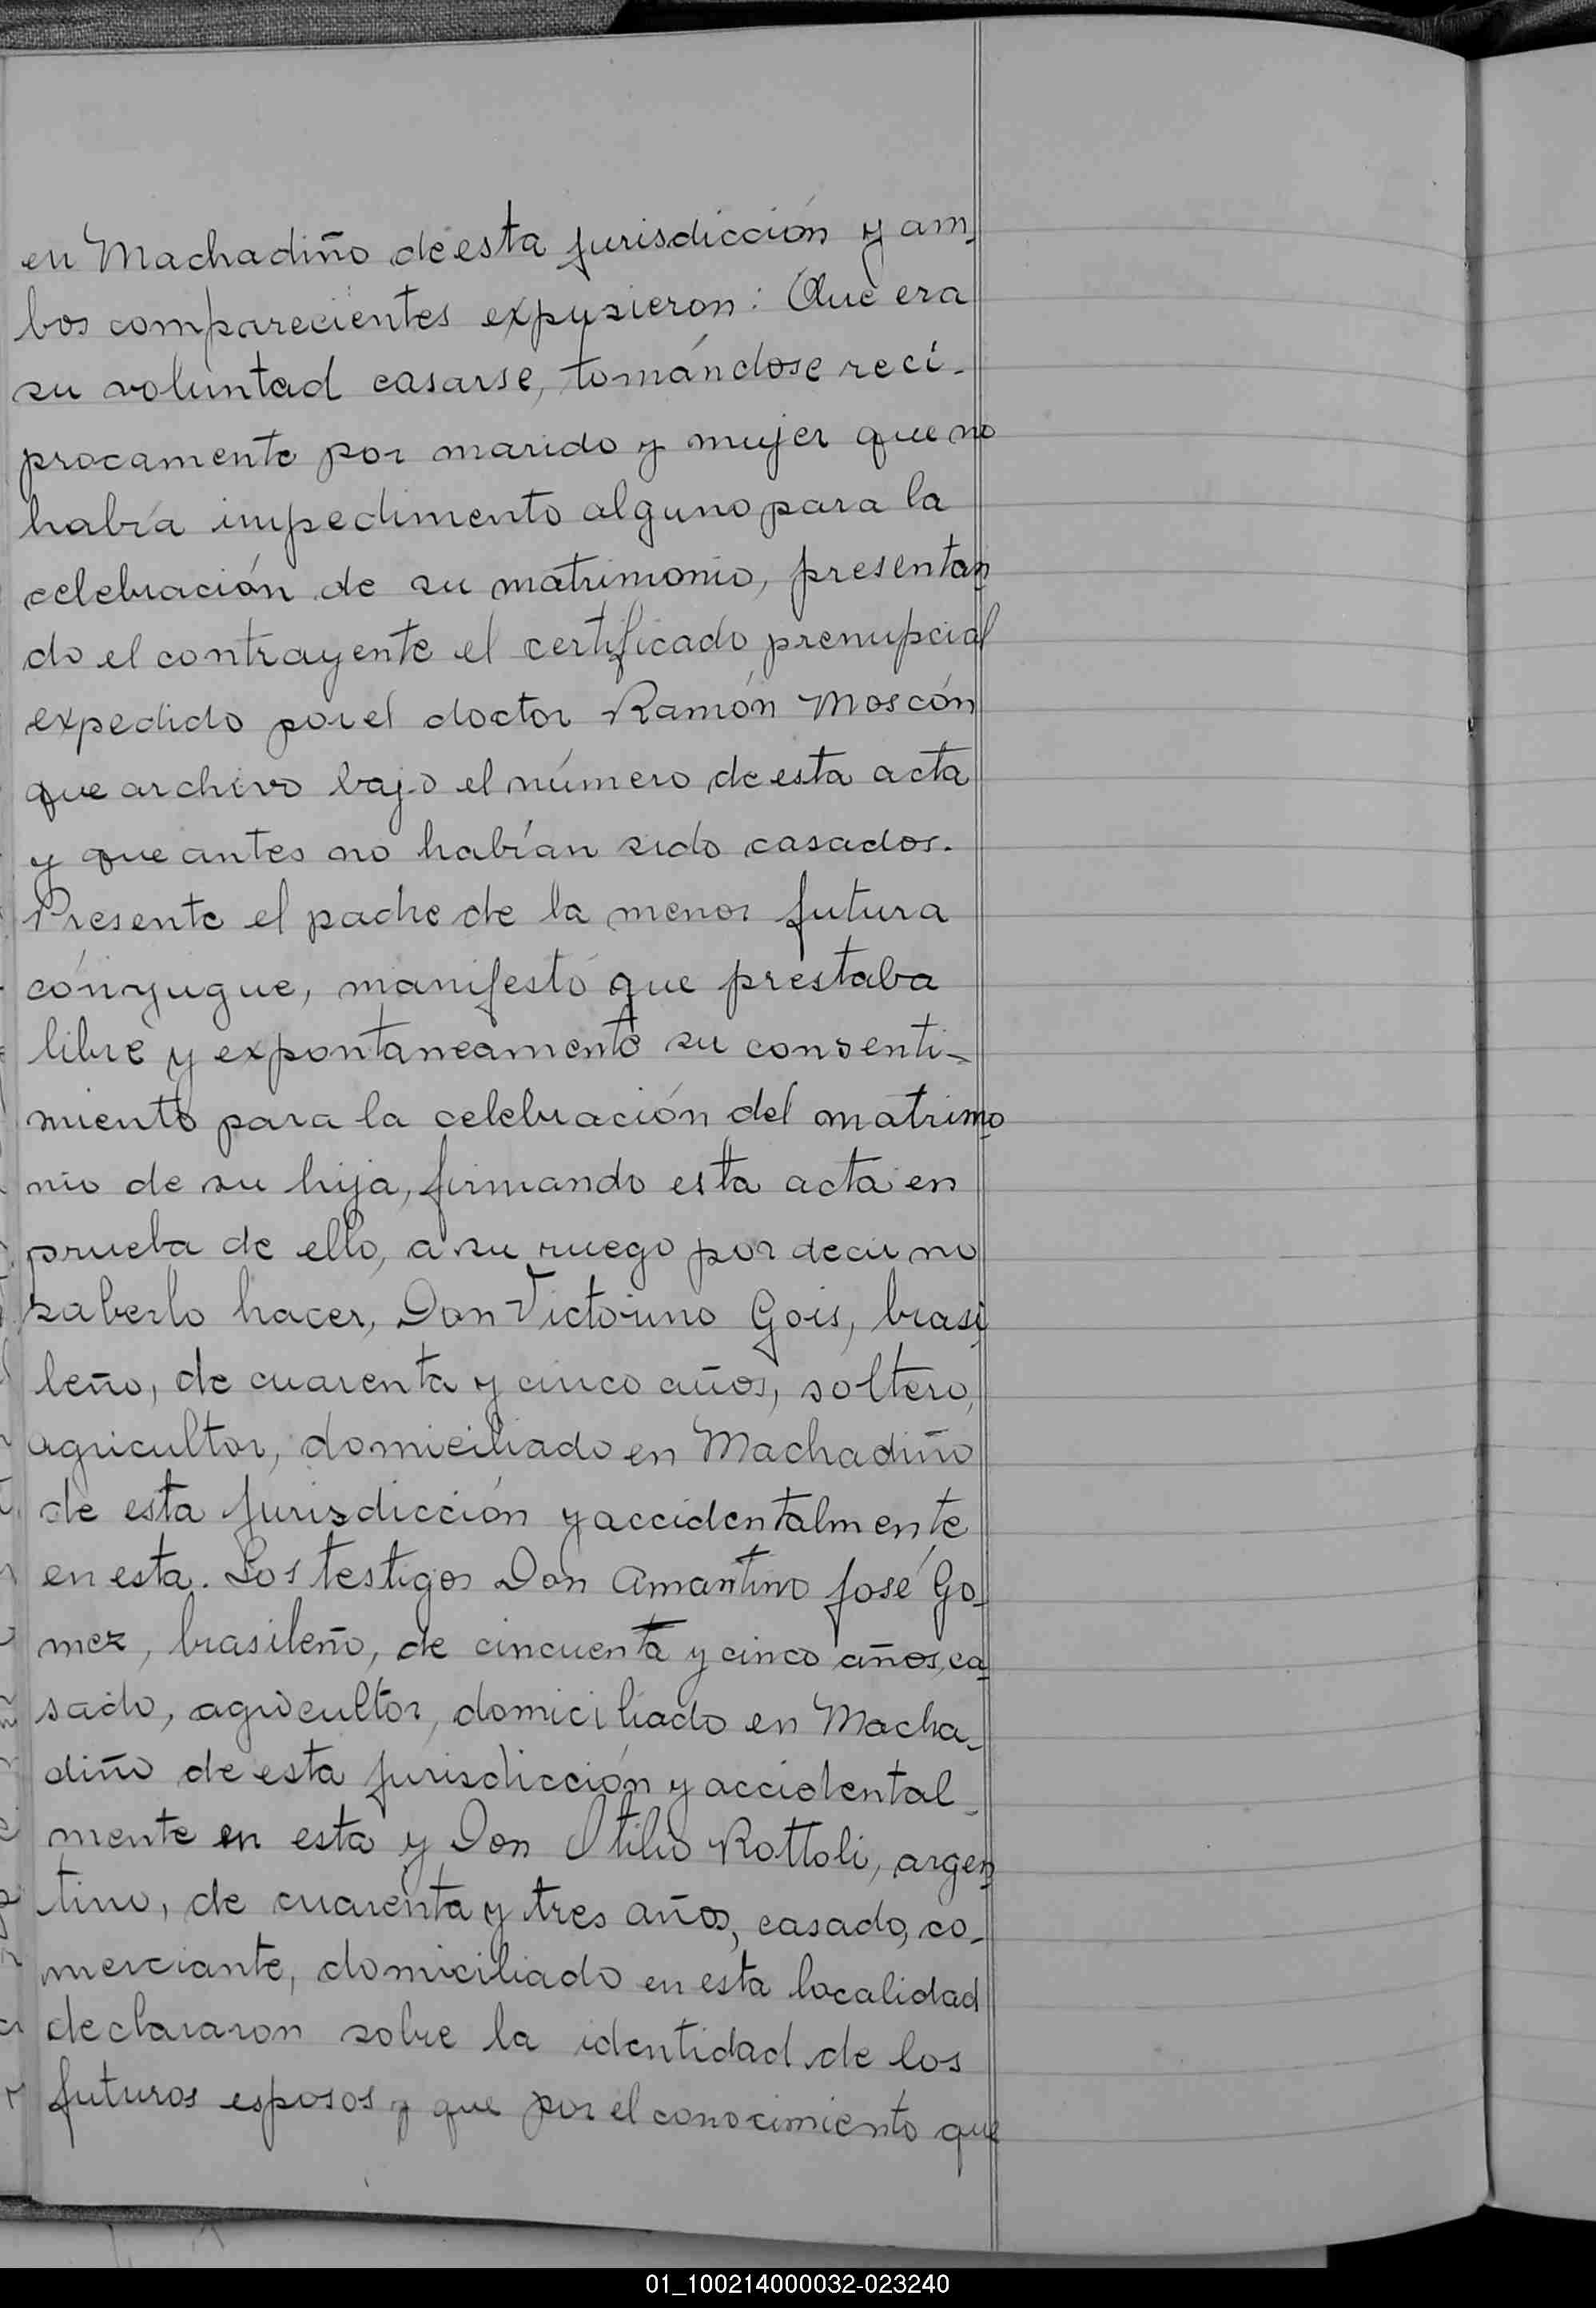 en Machadiño de esta jurisdicción y am-
bos comparecientes expusieron: Que era
su voluntad casarse, tomándose recí-
procamente por marido y mujer que no
había impedimento alguno para la
celebración de su matrimonio, presentan
do el contrayente el certificado prenupcial
expedido por el doctor Ramón Moscón
que archivo bajo el número de esta acta
y que antes no habían sido casados.
Presente el padre de la menor futura
cónyugue, manifestó que prestaba
libre y expontaneamente su consenti-
miento para la celebración del matrimo
nio de su hija, firmando esta acta en
prueba de ello, a su ruego por decir no
saberlo hacer, Don Victorino Gois, brasi
leño, de cuarenta y cinco años, soltero,
agricultor, domiciliado en Machadiño
de esta jurisdicción y accidentalmente
en esta. Los testigos Don Amantino José Go-
mez, brasileño, de cincuenta y cinco años, ca
sado, agricultor, domiciliado en Macha-
diño de esta jurisdicción y accidental-
mente en esta y Don Otilio Rottoli, argen
tino, de cuarenta y tres años, casado, co-
merciante, domiciliado en esta localidad
declararon sobre la identidad de los
futuros esposos y que por el conocimiento que
01_100214000032-023240